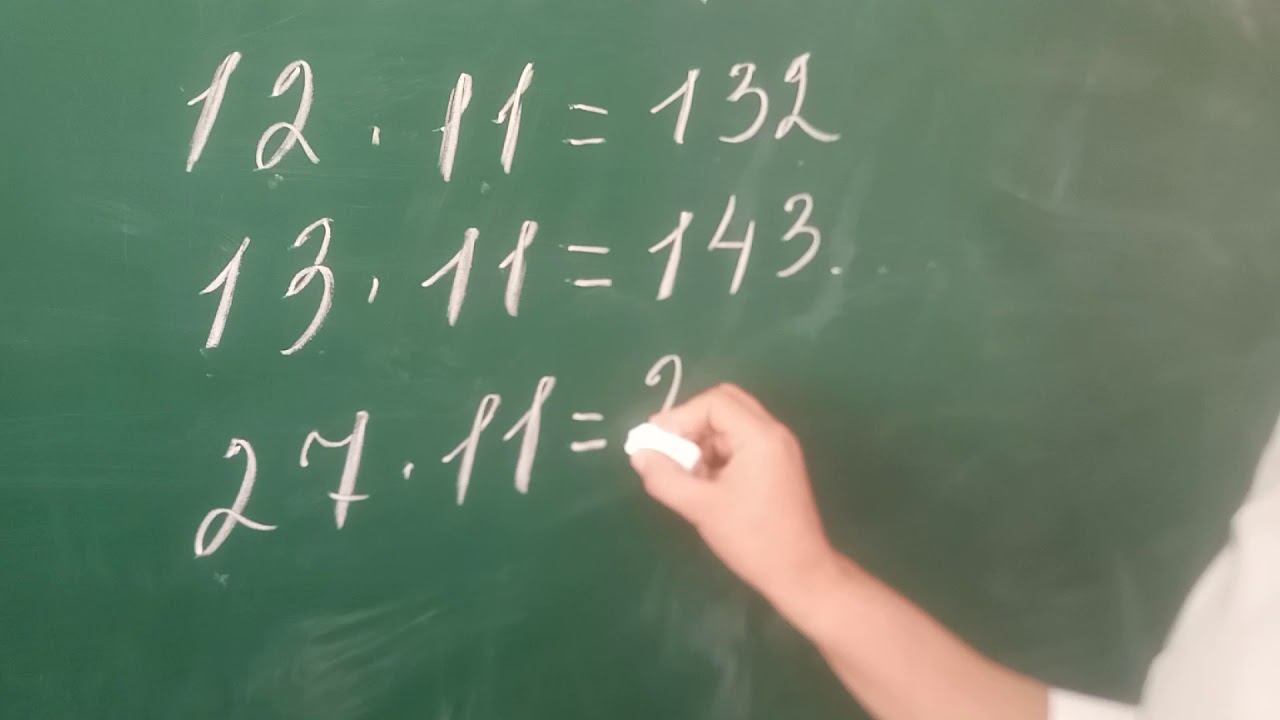 12 · 11 = 132
13 · 11 = 143.
27 · 11 = 2